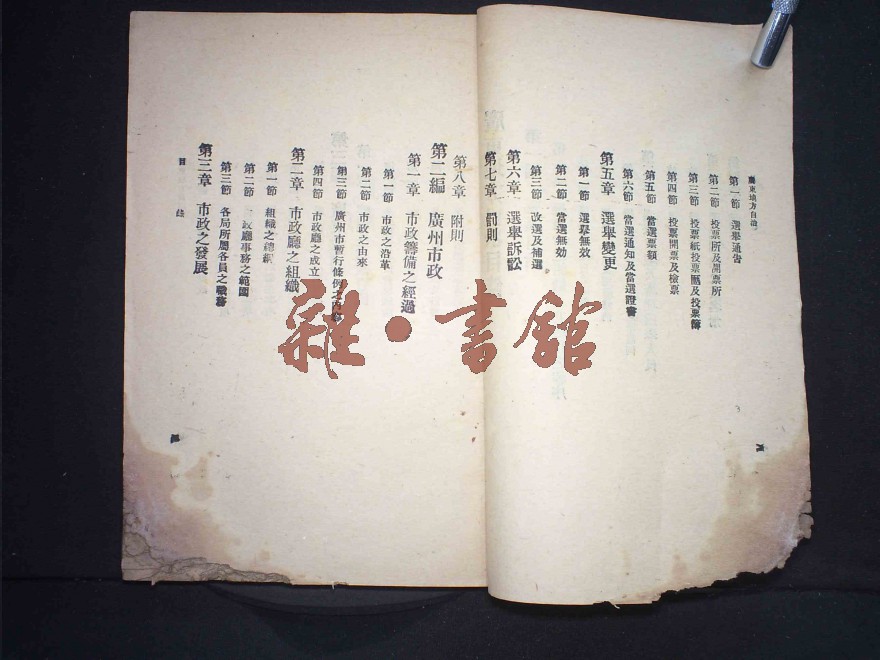 廣東地方自治
第一節 選舉通告
第二節 投票所及開票所
第三節 投票紙投票匭及投票簿
第四節 投票開票及檢票
第五節 當選票額
第六節 當選通知及當選證書
第五章 選舉變更
第一節 選舉無效
第二節 當選無効
第三節 改選及補選
第六章 選舉訴訟
第七章 罰則
第八章 附則
第二編 廣州市政
第一章 市政籌備之經過
第一節 市政之沿革
第二節 市政之由來
第三節 廣州市暫行條例之內容
第四節 市政廳之成立
第二章 市政廳之組織
第一節 組織之總綱
第二節 政廳事務之範圍
第三節 各局所屬各員之職務
第三章 市政之發展
目 錄
雜·書館